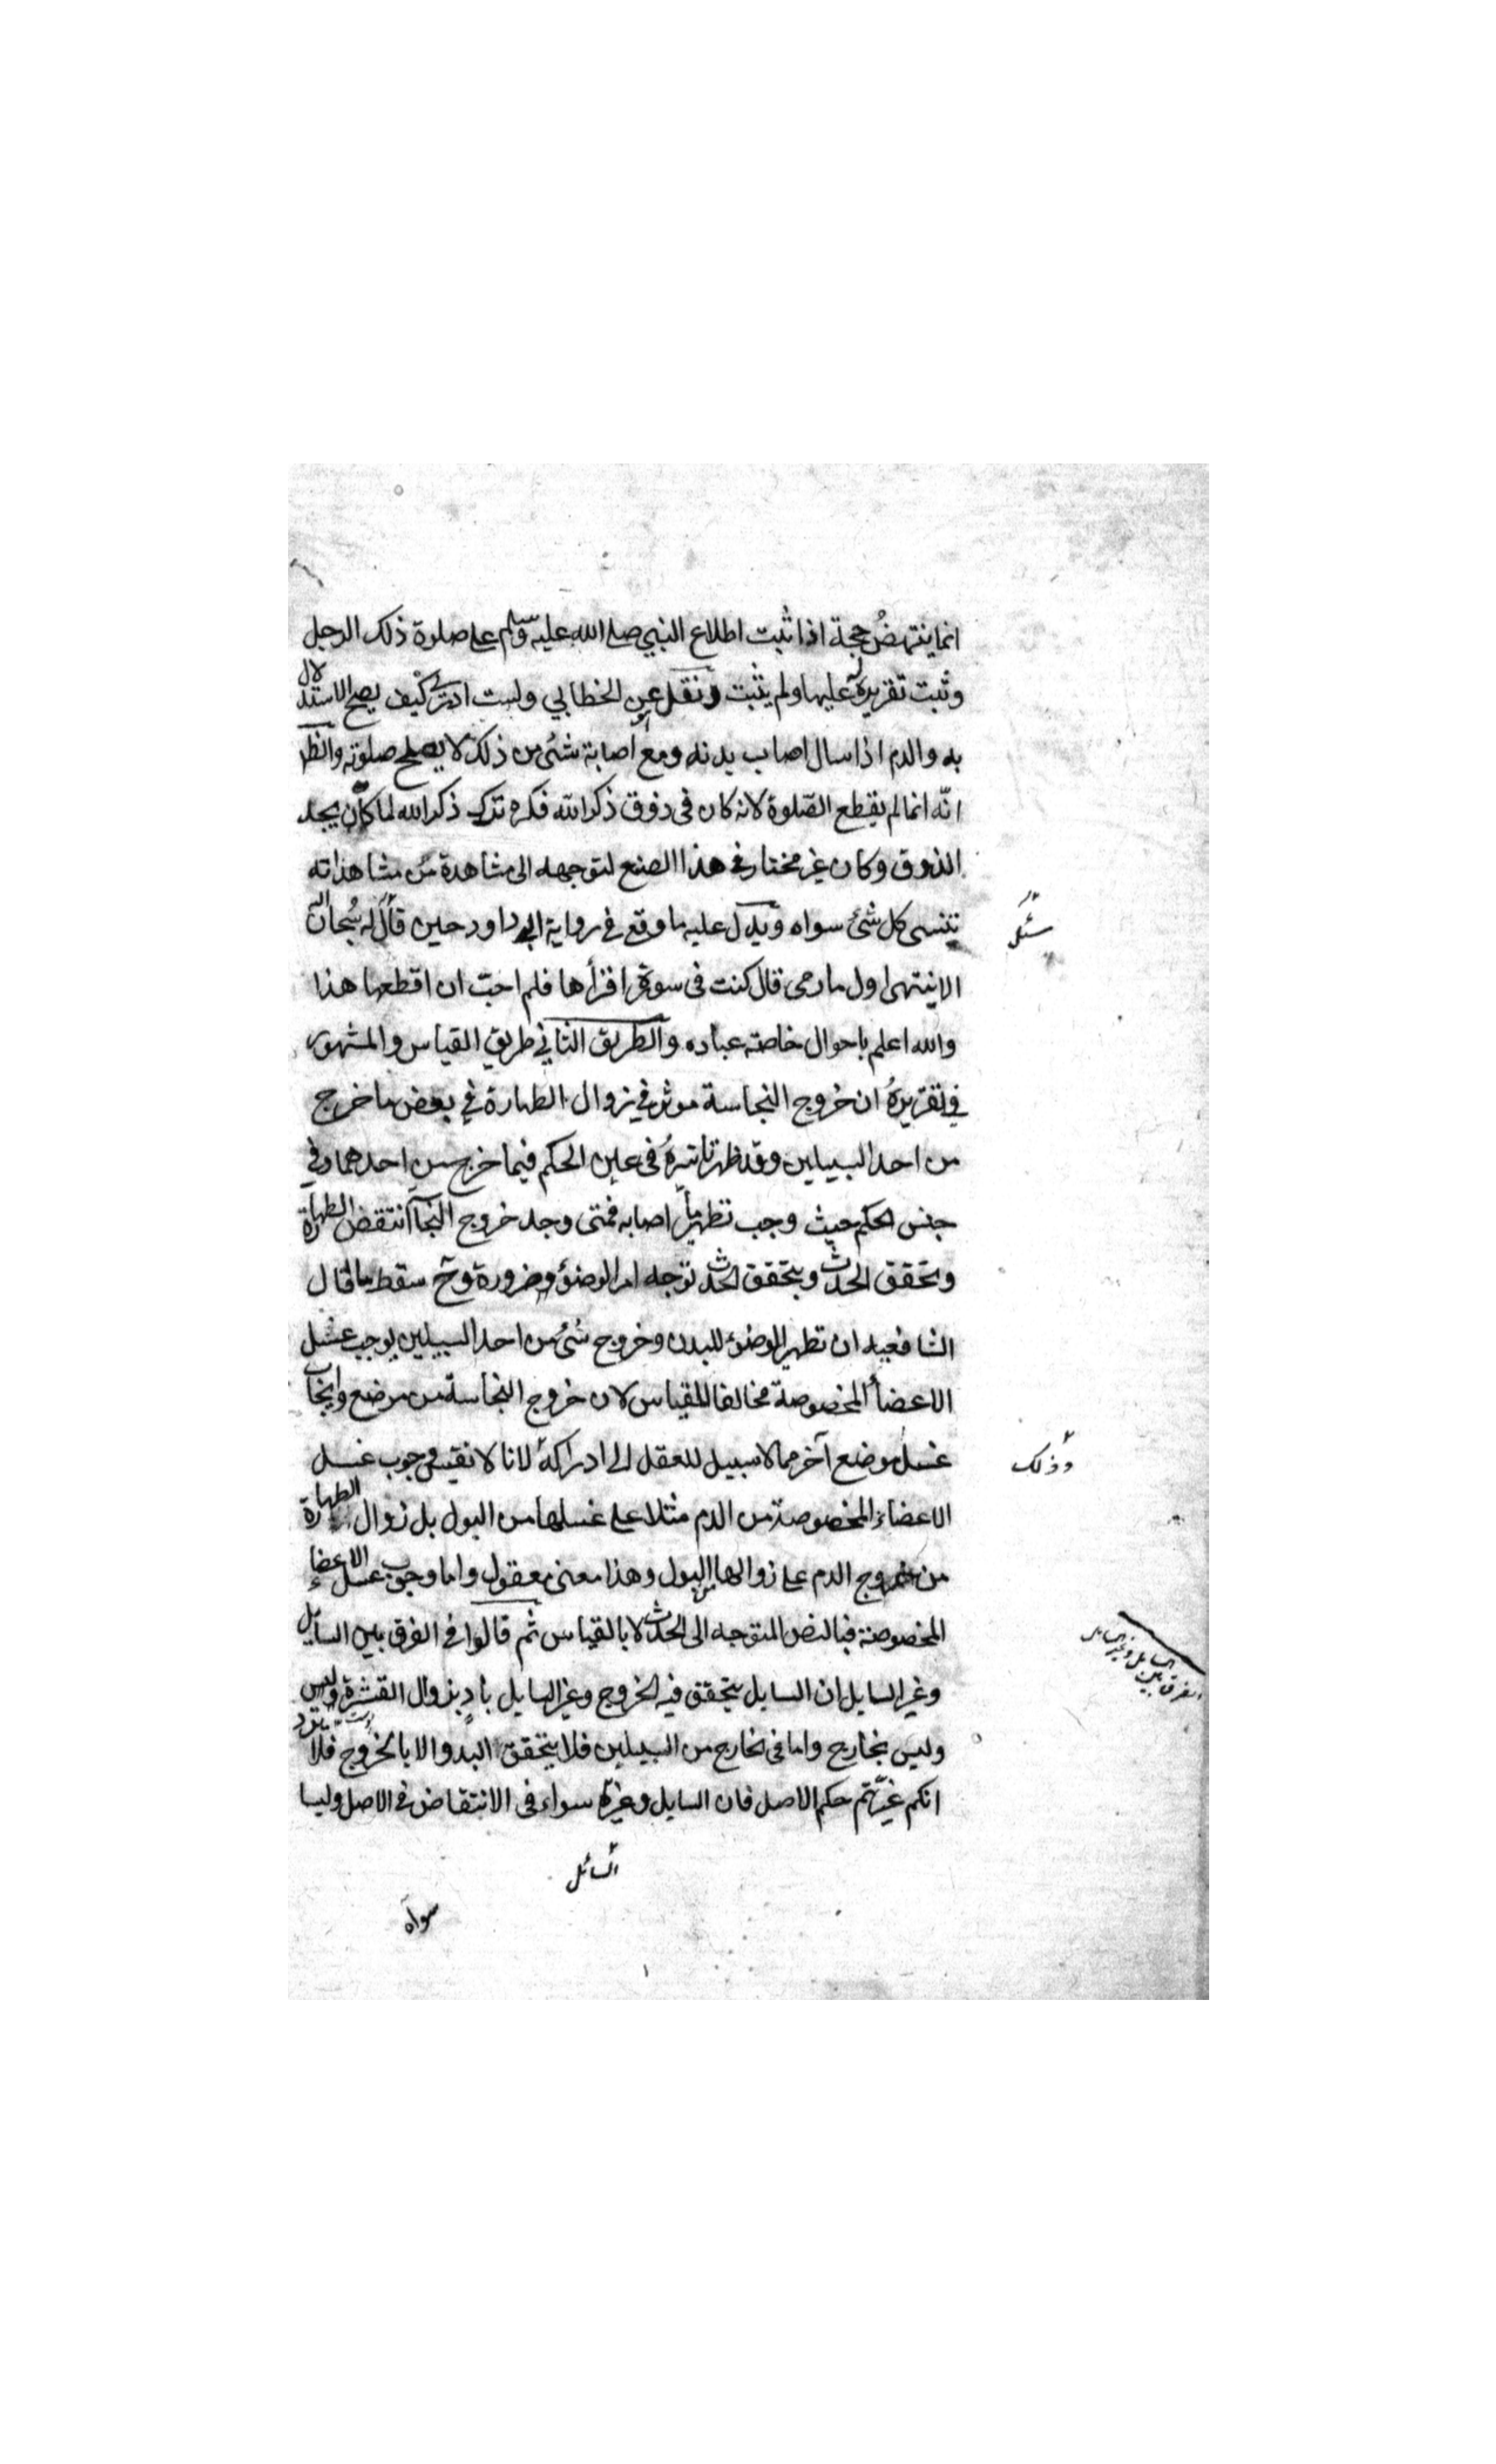 انما ينتهضُ حجة اذا ثبت اطلاع النبي صلى الله عليه وسلم على صلوة ذلك الرجل
وثبت تقريره عليها ولم يثبت ونقل عن الخطابي ولست ادرى كيف يصح الاستدلال
به والدم اذا سال اصاب بدنه ومع اصابة شئ من ذلك لا يصلح صلوته وانظر
انّه انما لم يقطع الصّلوة لانه كان فى ذوق ذكر الله فكره ترك ذكر الله لما كان يجد
الذوق وكان غير مختار فى هذا الصنع لتوجهه الى مشاهدة من مشاهداته
تنسى كل شئ سواه ويدل عليه ما وقع فى رواية ابى داود حين قال له سُبحان الله
الا نبتهى اول ما رمى قال كنت فى سورة اقرأها فلم احبّ ان اقطعها هذا
والله اعلم باحوال خاصة عباده والطريق الثاني طريق القياس والمشهور
في تقريرهُ ان خروج النجاسة موثر في زوال الطهارة في بعض ما خرج
من احد السبيلين وقد ظهر تاثيرهُ فى عين الحكم فيما خرج من احدهما وفي
جنس الحكم حيث وجب تطهير ما اصابه فمتى وجد خروج النجاسة انتقض الطهارة
وتحقق الحدث وبتحقق الحدث توجه امر الوضوء ضرورة وح سقط ما قال
الشافعيه ان تطهير الوضوء للبدن وخروج شئ من احد السبيلين يوجب غسل
الاعضأ المخصوصة مخالفا للقياس لان خروج النجاسة من موضع وايجاب
غسل موضع آخر مما لا سبيل للعقل الى ادراكه لانا لا نقيس وجوب غسل
الاعضاء المخصوصة من الدم مثلا على غسلها من البول بل زوال الطهارة
من خروج الدم على زوالها من البول وهذا معنى معقول واما وجوب غسل الاعضاء
المخصوصة فبالنص المتوجه الى الحدث لا بالقياس ثم قالوا فى الفرق بين السايل
وغير السايل ان السايل يتحقق فيه الخروج وغير السايل بادٍ بزوال القشرة وليس
وليس بخارج واما فى الخارج من السبيلين فلا يتحقق البدو الا بالخروج فلا يرد
انكم غيّرتم حكم الاصل فان السايل وغيره سواء فى الانتقاض فى الاصل وليسا
وذلك
الفرق بين السايل وغير السايل
السائل
سواه